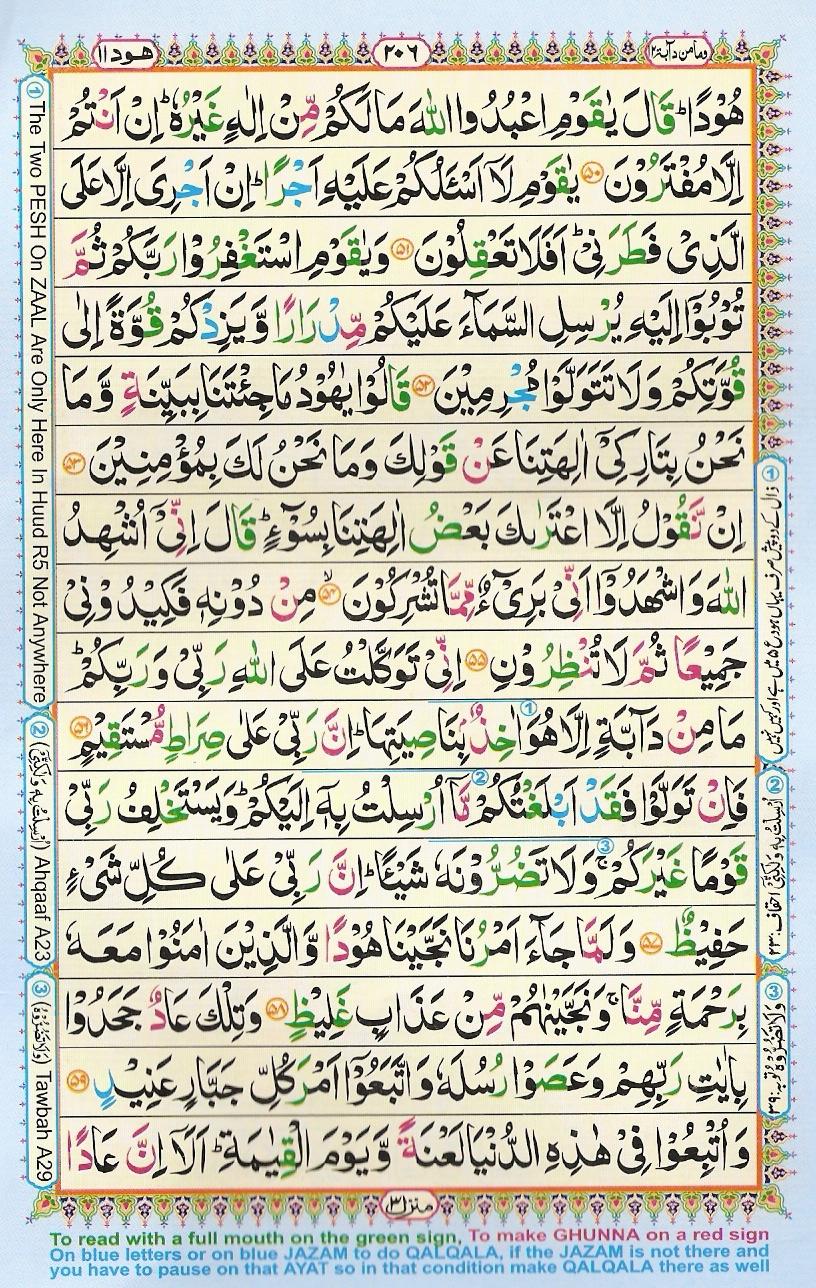 ومامن دآبة ١٢
٢٠٦
هود ١١
هُوْدًا ؕ قَالَ يٰقَوْمِ اعْبُدُوا اللّٰهَ مَا لَكُمْ مِّنْ اِلٰهٍ غَيْرُهٗ ؕ اِنْ اَنْتُمْ
اِلَّا مُفْتَرُوْنَ ۝۵۰ يٰقَوْمِ لَاۤ اَسْـَٔلُكُمْ عَلَيْهِ اَجْرًا ؕ اِنْ اَجْرِىَ اِلَّا عَلَى
الَّذِىْ فَطَرَنِىْ ؕ اَفَلَا تَعْقِلُوْنَ ۝۵۱ وَيٰقَوْمِ اسْتَغْفِرُوْا رَبَّكُمْ ثُمَّ
تُوْبُوْۤا اِلَيْهِ يُرْسِلِ السَّمَآءَ عَلَيْكُمْ مِّدْرَارًا وَّيَزِدْكُمْ قُوَّةً اِلٰى
قُوَّتِكُمْ وَلَا تَتَوَلَّوْا مُجْرِمِيْنَ ۝۵۲ قَالُوْا يٰهُوْدُ مَا جِئْتَنَا بِبَيِّنَةٍ وَّمَا
نَحْنُ بِتَارِكِىْۤ اٰلِهَتِنَا عَنْ قَوْلِكَ وَمَا نَحْنُ لَكَ بِمُؤْمِنِيْنَ ۝۵۳
اِنْ نَّقُوْلُ اِلَّا اعْتَرٰىكَ بَعْضُ اٰلِهَتِنَا بِسُوْٓءٍ ؕ قَالَ اِنِّىْۤ اُشْهِدُ
اللّٰهَ وَاشْهَدُوْۤا اَنِّىْ بَرِىْٓءٌ مِّمَّا تُشْرِكُوْنَ ۙ۝۵۴ مِنْ دُوْنِهٖ فَكِيْدُوْنِىْ
جَمِيْعًا ثُمَّ لَا تُنْظِرُوْنِ ۝۵۵ اِنِّىْ تَوَكَّلْتُ عَلَى اللّٰهِ رَبِّىْ وَرَبِّكُمْ ؕ
مَا مِنْ دَآبَّةٍ اِلَّا هُوَ اٰخِذٌۢ بِنَاصِيَتِهَا ؕ اِنَّ رَبِّىْ عَلٰى صِرَاطٍ مُّسْتَقِيْمٍ ۝۵۶
فَاِنْ تَوَلَّوْا فَقَدْ اَبْلَغْتُكُمْ مَّاۤ اُرْسِلْتُ بِهٖۤ اِلَيْكُمْ ؕ وَيَسْتَخْلِفُ رَبِّىْ
قَوْمًا غَيْرَكُمْ ۚ وَلَا تَضُرُّوْنَهٗ شَيْـًٔا ؕ اِنَّ رَبِّىْ عَلٰى كُلِّ شَىْءٍ
حَفِيْظٌ ۝۵۷ وَلَمَّا جَآءَ اَمْرُنَا نَجَّيْنَا هُوْدًا وَّالَّذِيْنَ اٰمَنُوْا مَعَهٗ
بِرَحْمَةٍ مِّنَّا ۚ وَنَجَّيْنٰهُمْ مِّنْ عَذَابٍ غَلِيْظٍ ۝۵۸ وَتِلْكَ عَادٌ ۙ جَحَدُوْا
بِاٰيٰتِ رَبِّهِمْ وَعَصَوْا رُسُلَهٗ وَاتَّبَعُوْۤا اَمْرَ كُلِّ جَبَّارٍ عَنِيْدٍ ۝۵۹
وَاُتْبِعُوْا فِىْ هٰذِهِ الدُّنْيَا لَعْنَةً وَّيَوْمَ الْقِيٰمَةِ ؕ اَلَاۤ اِنَّ عَادًا
منزل ٣
① The Two PESH On ZAAL Are Only Here In Huud R5 Not Anywhere
② (اُرْسِلْتُ بِهٖ وَلٰكِنِّىْ) Ahqaaf A23
③ (وَلَا تَضُرُّوْهُ) Tawbah A29
① ذال کے دو پیش صرف یہاں ہود رع ۵ میں ہے اور کہیں نہیں
② اُرْسِلْتُ بِهٖ وَلٰكِنِّىْ احقاف:۲۳
③ وَلَا تَضُرُّوْهُ توبہ:۳۹
To read with a full mouth on the green sign, To make GHUNNA on a red sign
On blue letters or on blue JAZAM to do QALQALA, if the JAZAM is not there and
you have to pause on that AYAT so in that condition make QALQALA there as well